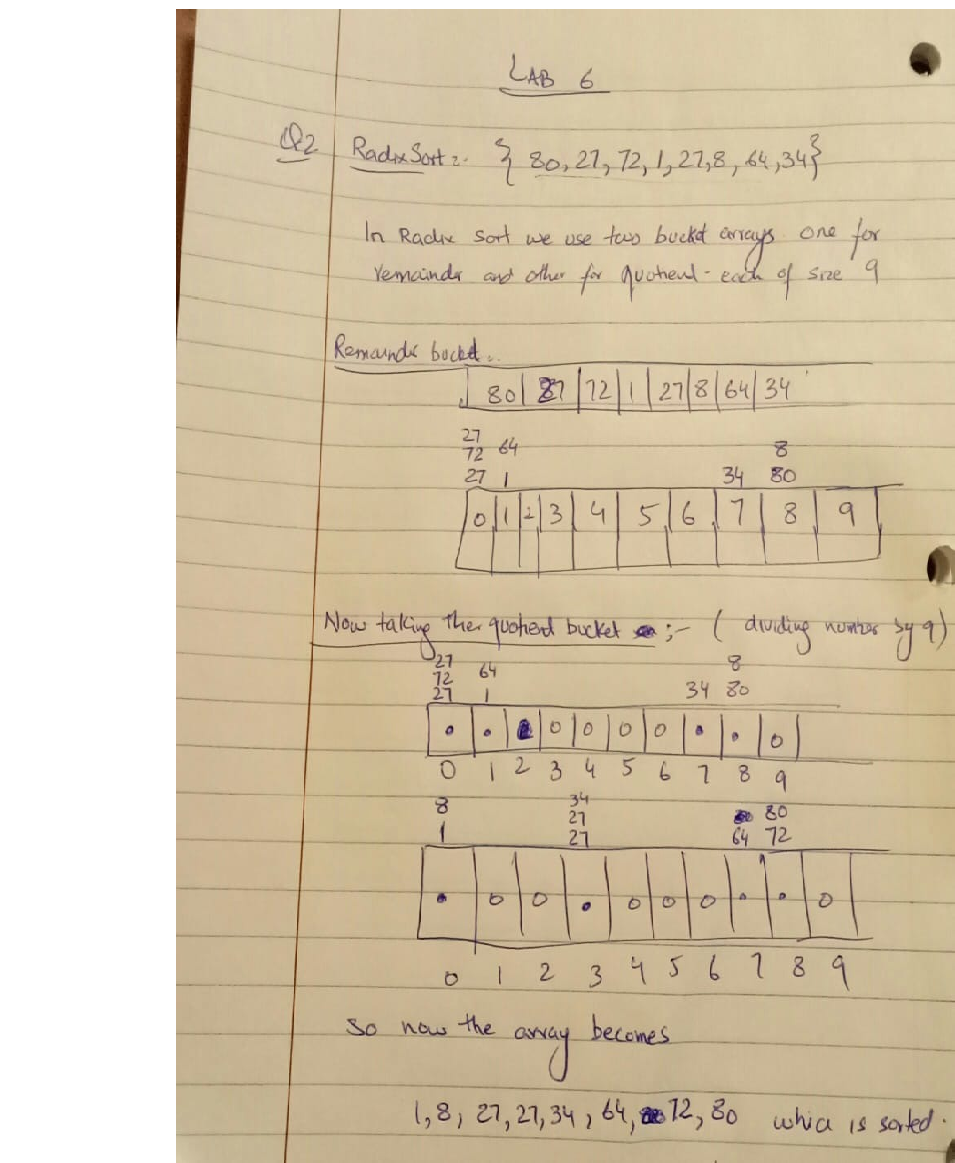 LAB 6
Q2 Radix Sort :- { 80, 27, 72, 1, 27, 8, 64, 34}
In Radix sort we use two bucket arrays one for
remainder and other for quotient - each of size 9
Remainder bucket :-
80 27 72 1 27 8 64 34
27
72 64 8
27 1 34 80
0 1 2 3 4 5 6 7 8 9
Now taking the quotient bucket :- ( dividing number by 9)
27 8
72 64
27 1 34 80
0 0 0 0 0
0 1 2 3 4 5 6 7 8 9
8 34
27 80
1 27 64 72
0 0 0 0 0 0
0 1 2 3 4 5 6 7 8 9
So now the array becomes
1, 8, 27, 27, 34, 64, 72, 80 which is sorted.